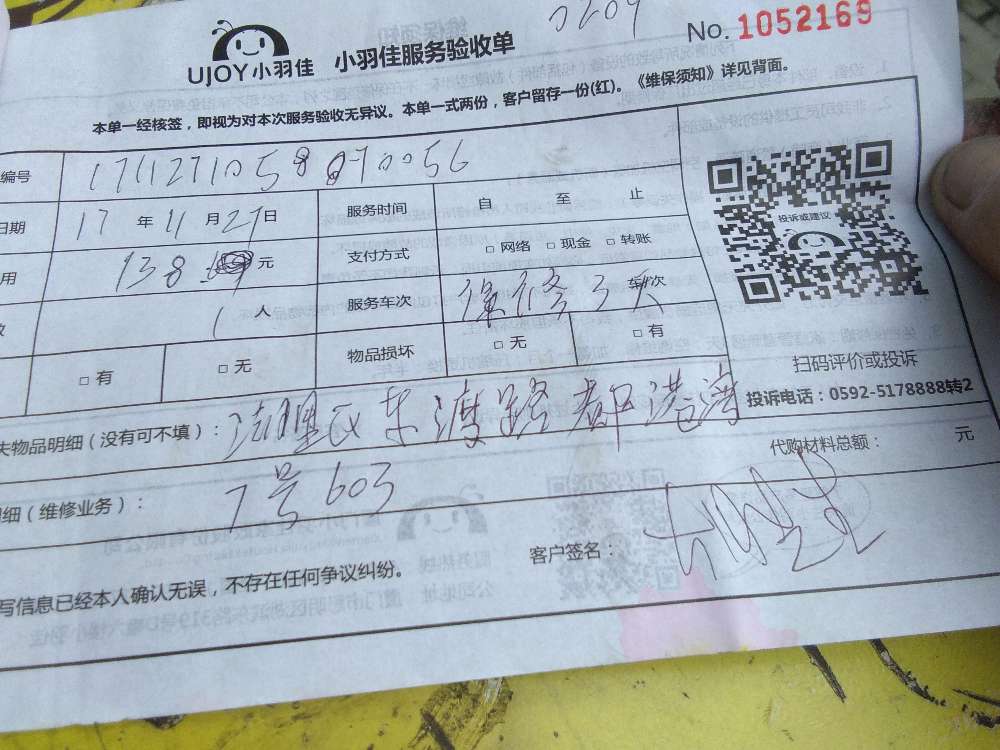 0209
UJOY小羽佳 小羽佳服务验收单 No. 1052169
本单一经核签，即视为对本次服务验收无异议。本单一式两份，客户留存一份(红)。《维保须知》详见背面。
编号 171127105870056
日期 17 年 11 月 27 日 服务时间 自 至 止
用 138 元 支付方式 □ 网络 □ 现金 □ 转账
数 1 人 服务车次 3 车次
□ 有 □ 无 物品损坏 □ 无 □ 有
投诉或建议
扫码评价或投诉
投诉电话：0592-5178888转2
失物品明细（没有可不填）： 湖里区东渡路都港湾
代购材料总额： 元
明细（维修业务）： 7号603
客户签名：
写信息已经本人确认无误，不存在任何争议纠纷。